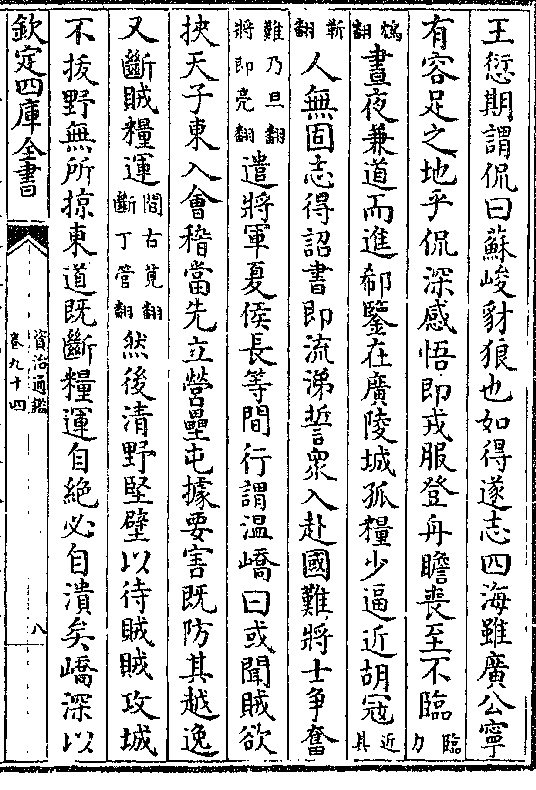 王愆期謂侃曰蘇峻豺狼也如得遂志四海雖廣公寧
有容足之地乎侃深感悟即戎服登舟瞻喪至不臨臨力
鴆翻晝夜兼道而進郗鑒在廣陵城孤糧少逼近胡寇近其
靳翻人無固志得詔書即流涕誓衆入赴國難將士争奮
難乃旦翻將即亮翻遣將軍夏侯長等間行謂温嶠曰或聞賊欲
挾天子東入會稽當先立營壘屯據要害既防其越逸
又斷賊糧運間古莧翻斷丁管翻然後清野堅壁以待賊賊攻城
不拔野無所掠東道既斷糧運自絶必自潰矣嶠深以
欽定四庫全書
資治通鑑
卷九十四
八